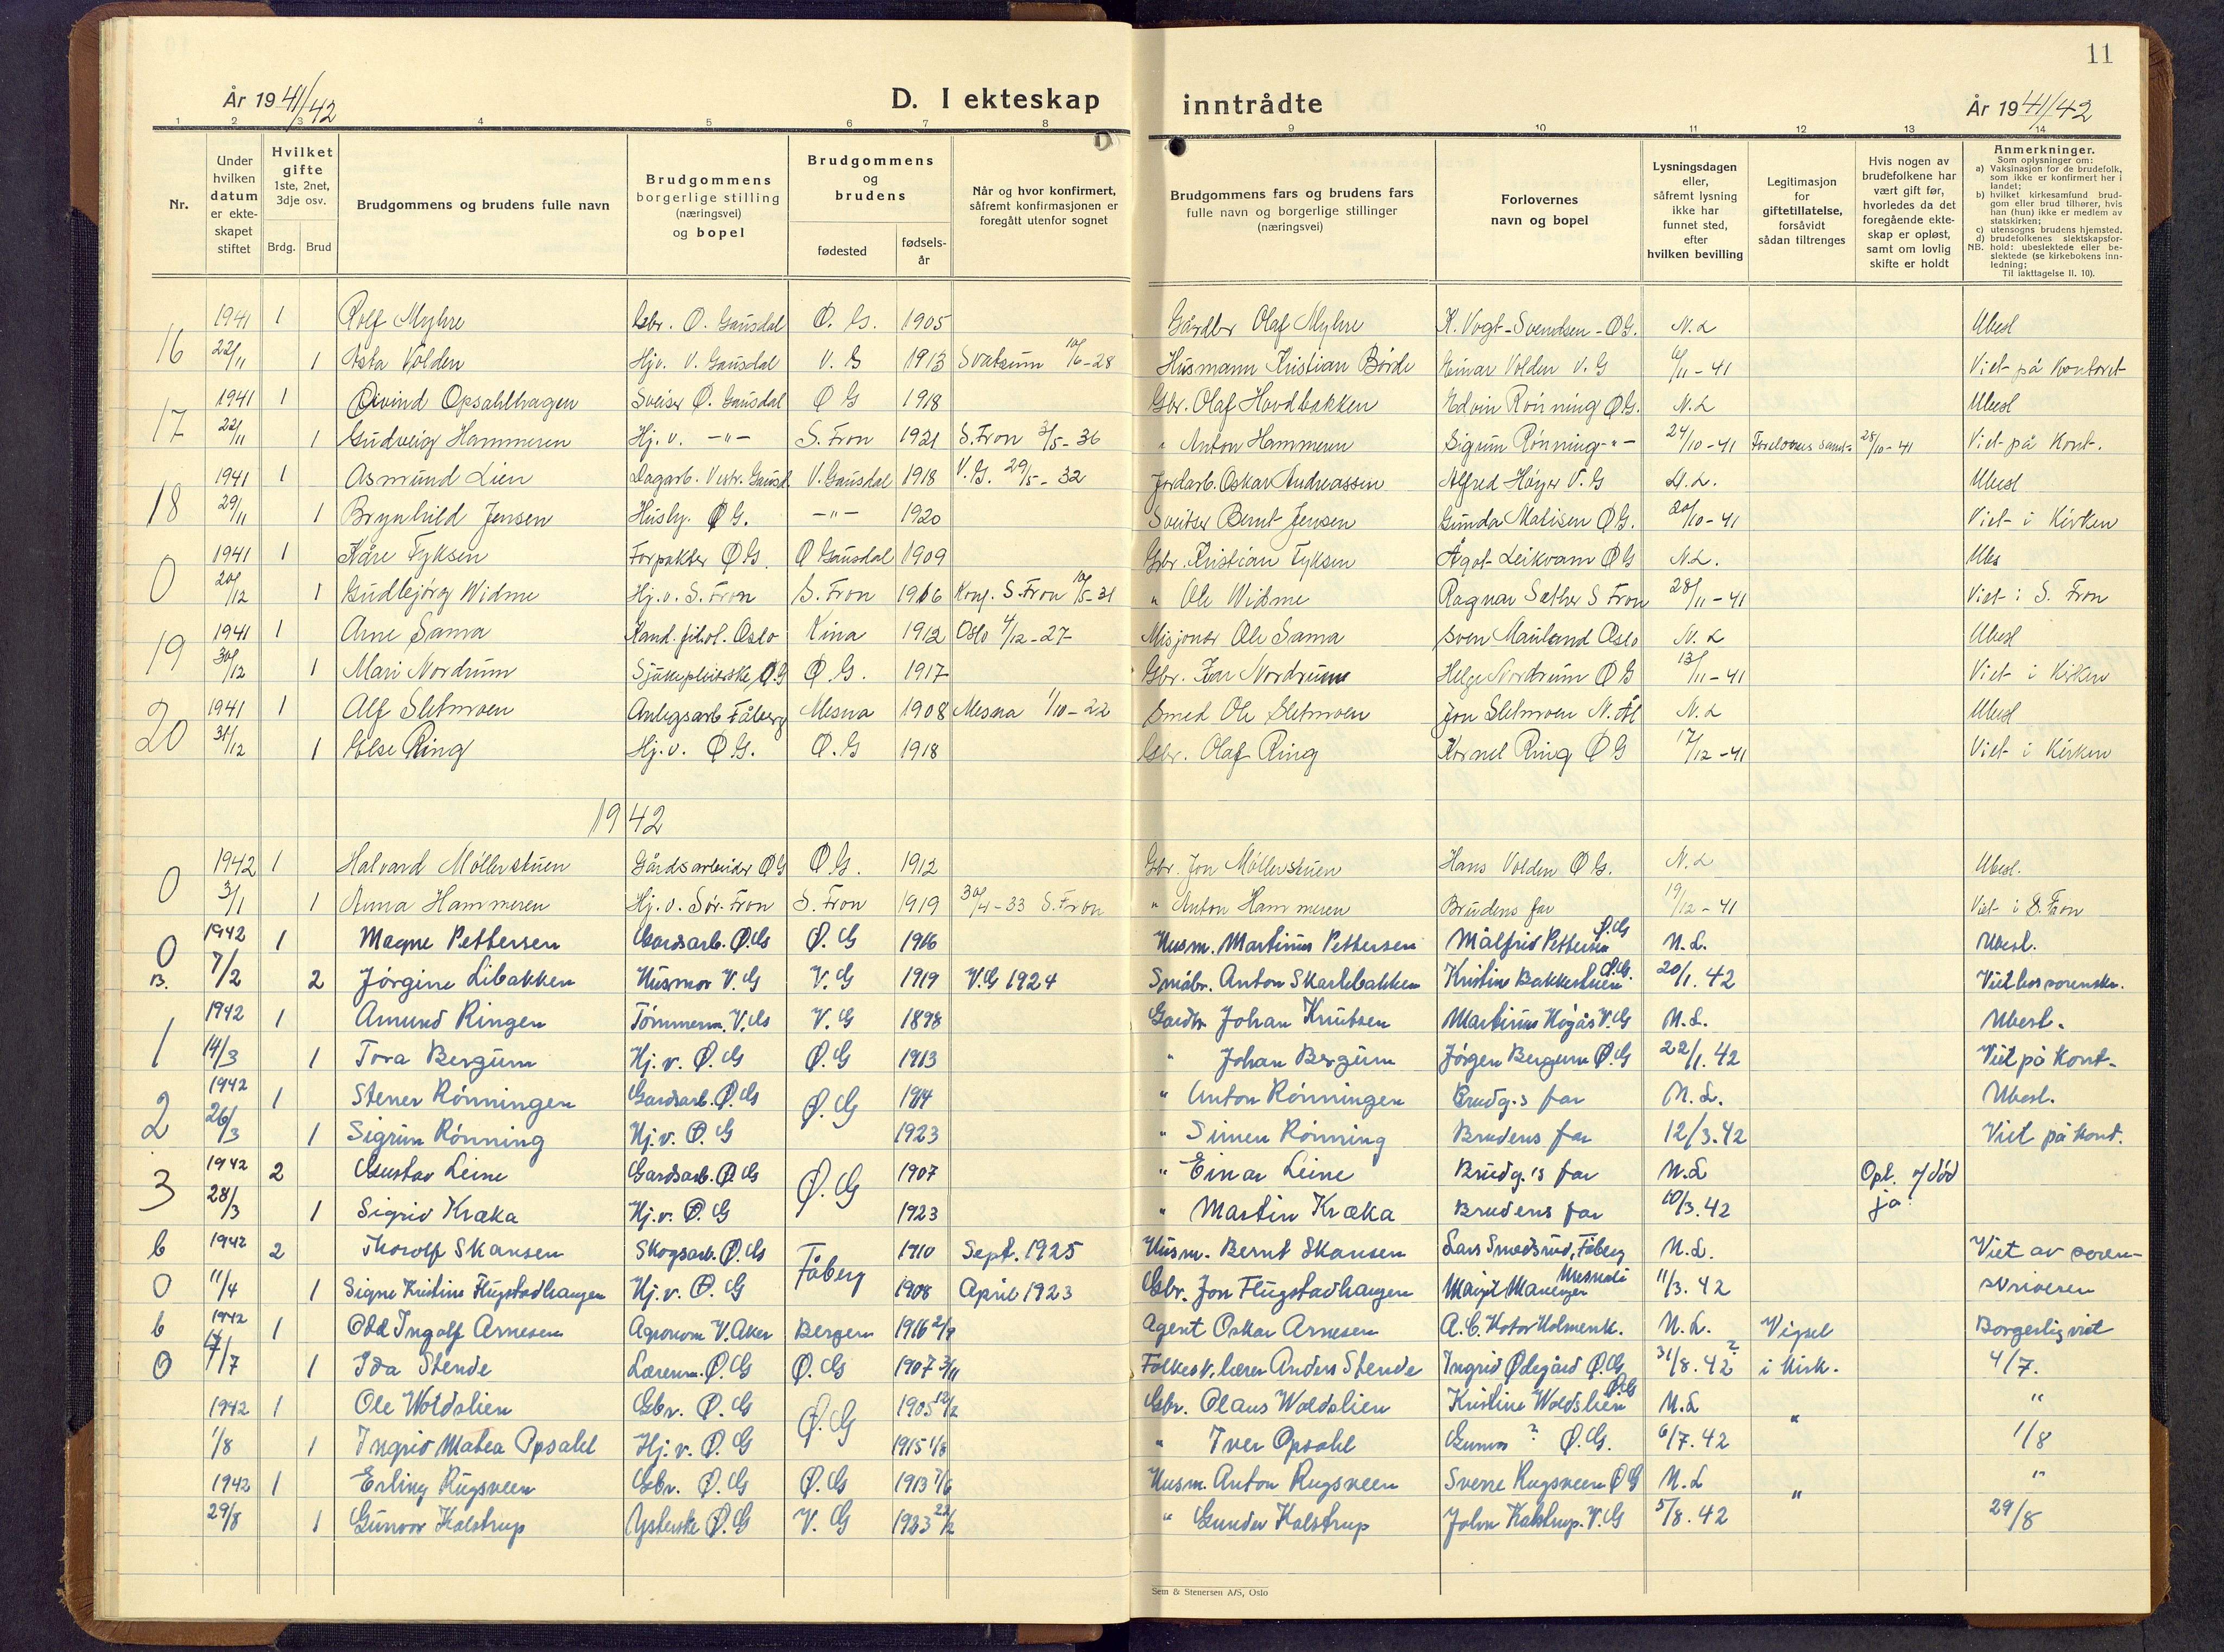 11
År 1941/42 D. I ekteskap inntrådte År 1941/42
1 2 3 4 5 6 7 8 9 10 11 12 13 14
Nr.
Under hvilken datum er ekteskapet stiftet
Hvilket gifte 1ste, 2net, 3dje osv.
Brdg. Brud
Brudgommens og brudens fulle navn
Brudgommens borgerlige stilling (næringsvei) og bopel
Brudgommens og brudens
fødested fødselsår
Når og hvor konfirmert, såfremt konfirmasjonen er foregått utenfor sognet
Brudgommens fars og brudens fars fulle navn og borgerlige stillinger (næringsvei)
Forlovernes navn og bopel
Lysningsdagen eller, såfremt lysning ikke har funnet sted, efter hvilken bevilling
Legitimasjon for giftetillatelse, forsåvidt sådan tiltrenges
Hvis nogen av brudefolkene har vært gift før, hvorledes da det foregående ekteskap er opløst, samt om lovlig skifte er holdt
Anmerkninger.
Som oplysninger om:
a) Vaksinasjon for de brudefolk, som ikke er konfirmert her i landet;
b) hvilket kirkesamfund brudgom eller brud tilhører, hvis han (hun) ikke er medlem av statskirken;
c) utensogns brudens hjemsted.
d) brudefolkenes slektskapsforhold: ubeslektede eller beslektede (se kirkebokens innledning;
NB.
Til iakttagelse II. 10).
16 1941 1 Rolf Myhre Gbr. Ø. Gausdal Ø. G. 1905 Gårdbr Olaf Myhre K. Vogt-Svendsen - ØG. N. L Ubesl
22/11 1 Asta Volden Hjv. V. Gausdal V. G 1913 Svatsum 10/6-28 Husmann Kristian Børde Einar Volden V. G 6/11-41 Viet på Kontoret
17 1941 1 Eivind Opsahlhagen Sveiser Ø. Gausdal Ø G 1918 Gbr. Olaf Hovdbakken Edvin Rønning ØG. N. L Ubesl
22/11 1 Gudveig Hammeren Hj. v. -"- S. Fron 1921 S. Fron 31/5-36 " Anton Hammeren Sigrun Rønning -"- 24/10-41 Forelovers samt. 28/10-41 Viet på Kont.
18 1941 1 Asmund Lien Dagarb. Vestr. Gausd. V. Gausdal 1918 V. G. 29/5-32 Jordarb. Oskar Andreassen Alfred Høyer V. G N. L. Ubesl
29/11 1 Brynhild Jensen Hushj. ØG. -"- 1920 Sveitser Bernt Jensen Gunda Matisen ØG. 20/10-41 Viet i Kirken
0 1941 1 Kåre Fyksen Forpakter ØG. Ø Gausdal 1909 Gbr. Kristian Fyksen Ågot Leikvam ØG N. L. Ubes
20/12 1 Gudbjørg Widme Hj. v. S. Fron S. Fron 1916 Konf. S. Fron 10/5-31 " Ole Widme Ragnar Sæther S Fron 28/11-41 Viet i S. Fron
19 1941 1 Arne Sama Kand. filol. Oslo Kina 1912 Oslo 4/12-27 Misjonær Ole Sama Sven Mauland Oslo N. L Ubesl
30/12 1 Mari Nordrum Sjukepleierske Ø.G Ø. G. 1917 Gbr. Nordrum Helge Nordrum ØG 13/11-41 Viet i Kirken
20 1941 1 Alf Sletmoen Anlegsarb Fåberg Mesna 1908 Mesna 1/10-22 Smed Ole Sletmoen Jon Sletmoen N. Ål N. L Ubesl
31/12 1 Else Ring Hj. v. ØG. Ø. G 1918 Gbr. Olaf Ring Kornel Ring ØG 17/12-41 Viet i Kirken
1942
0 1942 1 Halvard Møllerstuen Gårdsarbeider ØG Ø G. 1912 Gbr. Jon Møllerstuen Hans Volden Ø G. N. L Ubesl.
3/1 1 Anna Hammeren Hj. v. Sør-Fron S. Fron 1919 30/4-33 S. Fron " Anton Hammeren Brudens far 19/12-41 Viet i S. Fron
0 1942 1 Magne Pettersen Gardsarb. Ø.G Ø. G 1916 Husm. Martinus Pettersen Målfrid Pettersen Ø.G N. L. Ubesl.
B. 7/2 2 Jørgine Libakken Husmor V. G V. G 1919 V. G 1924 Småbr. Anton Skartlibakken Kristine Bakkestuen Ø.G. 20/1. 42 Viet hos sorenskr.
1 1942 1 Amund Ringen Tømmerm. V. G V. G 1898 Gardbr Johan Knutsen Martinus Høgås V. G N. L. Ubesl.
14/3 1 Tora Bergum Hj. v. Ø. G Ø. G 1913 " Johan Bergum Jørgen Bergum Ø. G 22/1. 42 Viet på Kont.
2 1942 1 Stener Rønningen Gardsarb. Ø. G Ø. G 1914 " Anton Rønningen Brudg.s far N. L. Ubesl.
26/3 1 Sigrun Rønning Hj. v. Ø. G 1923 " Simen Rønning Brudens far 12/3. 42 Viet på Kont.
3 1942 2 Gustav Leine Gardsarb. Ø. G Ø. G 1907 " Einar Leine Brudg.'s far N. L Opl. v/død
28/3 1 Sigrid Kræka Hj. v. Ø. G 1923 " Martin Kræka Brudens far 10/3. 42 ja
b 1942 2 Thorolf Skansen Skogsarb. Ø. G Fåberg 1910 Sept. 1925 Husm. Bernt Skansen Lars Smedsrud, Fåberg N. L. Viet av soren-
0 11/4 1 Signe Kristine Flugstadhaugen Hj. v. Ø. G 1908 April 1923 Gbr. Jon Flugstadhaugen Margit Mesnali 11/3. 42 skriveren
b 1942 1 Odd Ingolf Arnesen Agronom V. Aker Bergen 1916 2/9 Agent Oskar Arnesen A. C. Holmenk. N. L. Vigsel Borgerlig viet
0 4/7 1 Ida Stende Lærerin. Ø. G Ø. G 1907 3/11 Folkes k. lærer Anders Stende Ingrid Ødegård Ø.G 31/8. 42 ? i kirk. 4/7.
1942 1 Ole Woldslien Gbr. Ø. G Ø. G 1905 12/2 Gbr. Olaus Woldslien Kristine Woldslien Ø.G N. L " "
1/8 1 Ingrid Matea Opsahl Hj. v. Ø. G 1915 1/8 " Iver Opsahl Gunvor ? Ø. G. 6/7. 42 1/8
1942 1 Erling Rugsveen Gbr. Ø. G Ø. G 1913 7/6 Husm. Anton Rugsveen Sverre Rugsveen ØG N. L " "
29/8 1 Gunvor Kalstrup Ysterske Ø. G V. G 1923 22/2 " Gunder Kalstrup John Kalstrup. V. G 5/8. 42 29/8
Sem & Stenersen A/S, Oslo